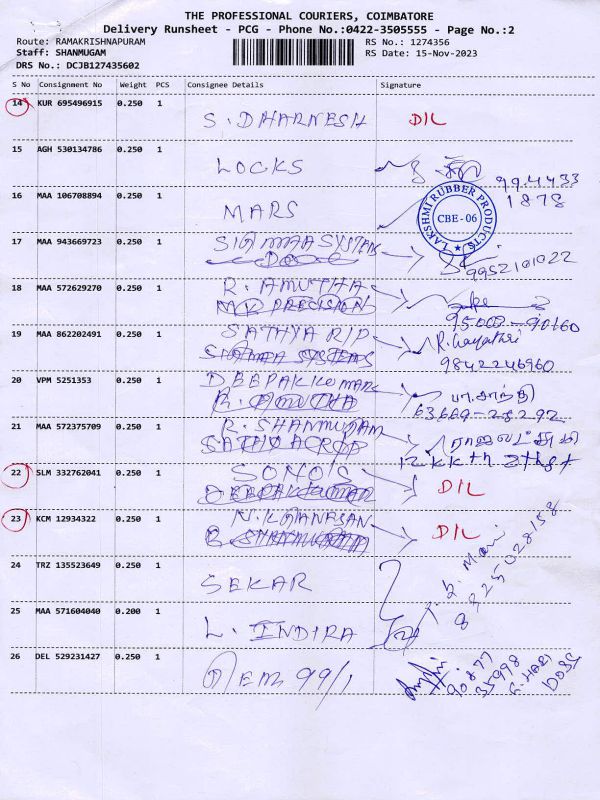 THE PROFESSIONAL COURIERS, COIMBATORE
Delivery Runsheet - PCG - Phone No.:0422-3505555 - Page No.:2
Route: RAMAKRISHNAPURAM RS No.: 1274356
Staff: SHANMUGAM RS Date: 15-Nov-2023
DRS No.: DCJB127435602
S No Consignment No Weight PCS Consignee Details Signature
14 KUR 695496915 0.250 1 S. DHARNESH DIL
15 AGH 530134786 0.250 1 LOCKS 99.4433
1878
16 MAA 106708894 0.250 1 MARS
LAKSHMI RUBBER PRODUCTS
CBE - 06
17 MAA 943669723 0.250 1 SIGMAA SYSTEMS
9952101022
18 MAA 572629270 0.250 1 R. AMUTHA
MK PRECISION 95002-90160
19 MAA 862202491 0.250 1 SATHYA RIP R. Gayathri
SIGMAA SYSTEMS 9842246960
20 VPM 5251353 0.250 1 DEEPAK KUMAR சாந்தி
R. AMUTHA 63669-28292
21 MAA 572375709 0.250 1 R. SHANMUGAM ராஜலட்சுமி
22 SLM 332762041 0.250 1 SONO'S DIL
DEEPAK KUMAR
23 KCM 12934322 0.250 1 N. DIL
R. SHANMUGAM
24 TRZ 135523649 0.250 1 SEKAR Mani
8925028158
25 MAA 571604040 0.200 1 L. INDIRA
26 DEL 529231427 0.250 1 99/1
90.877
35998
G. HARI